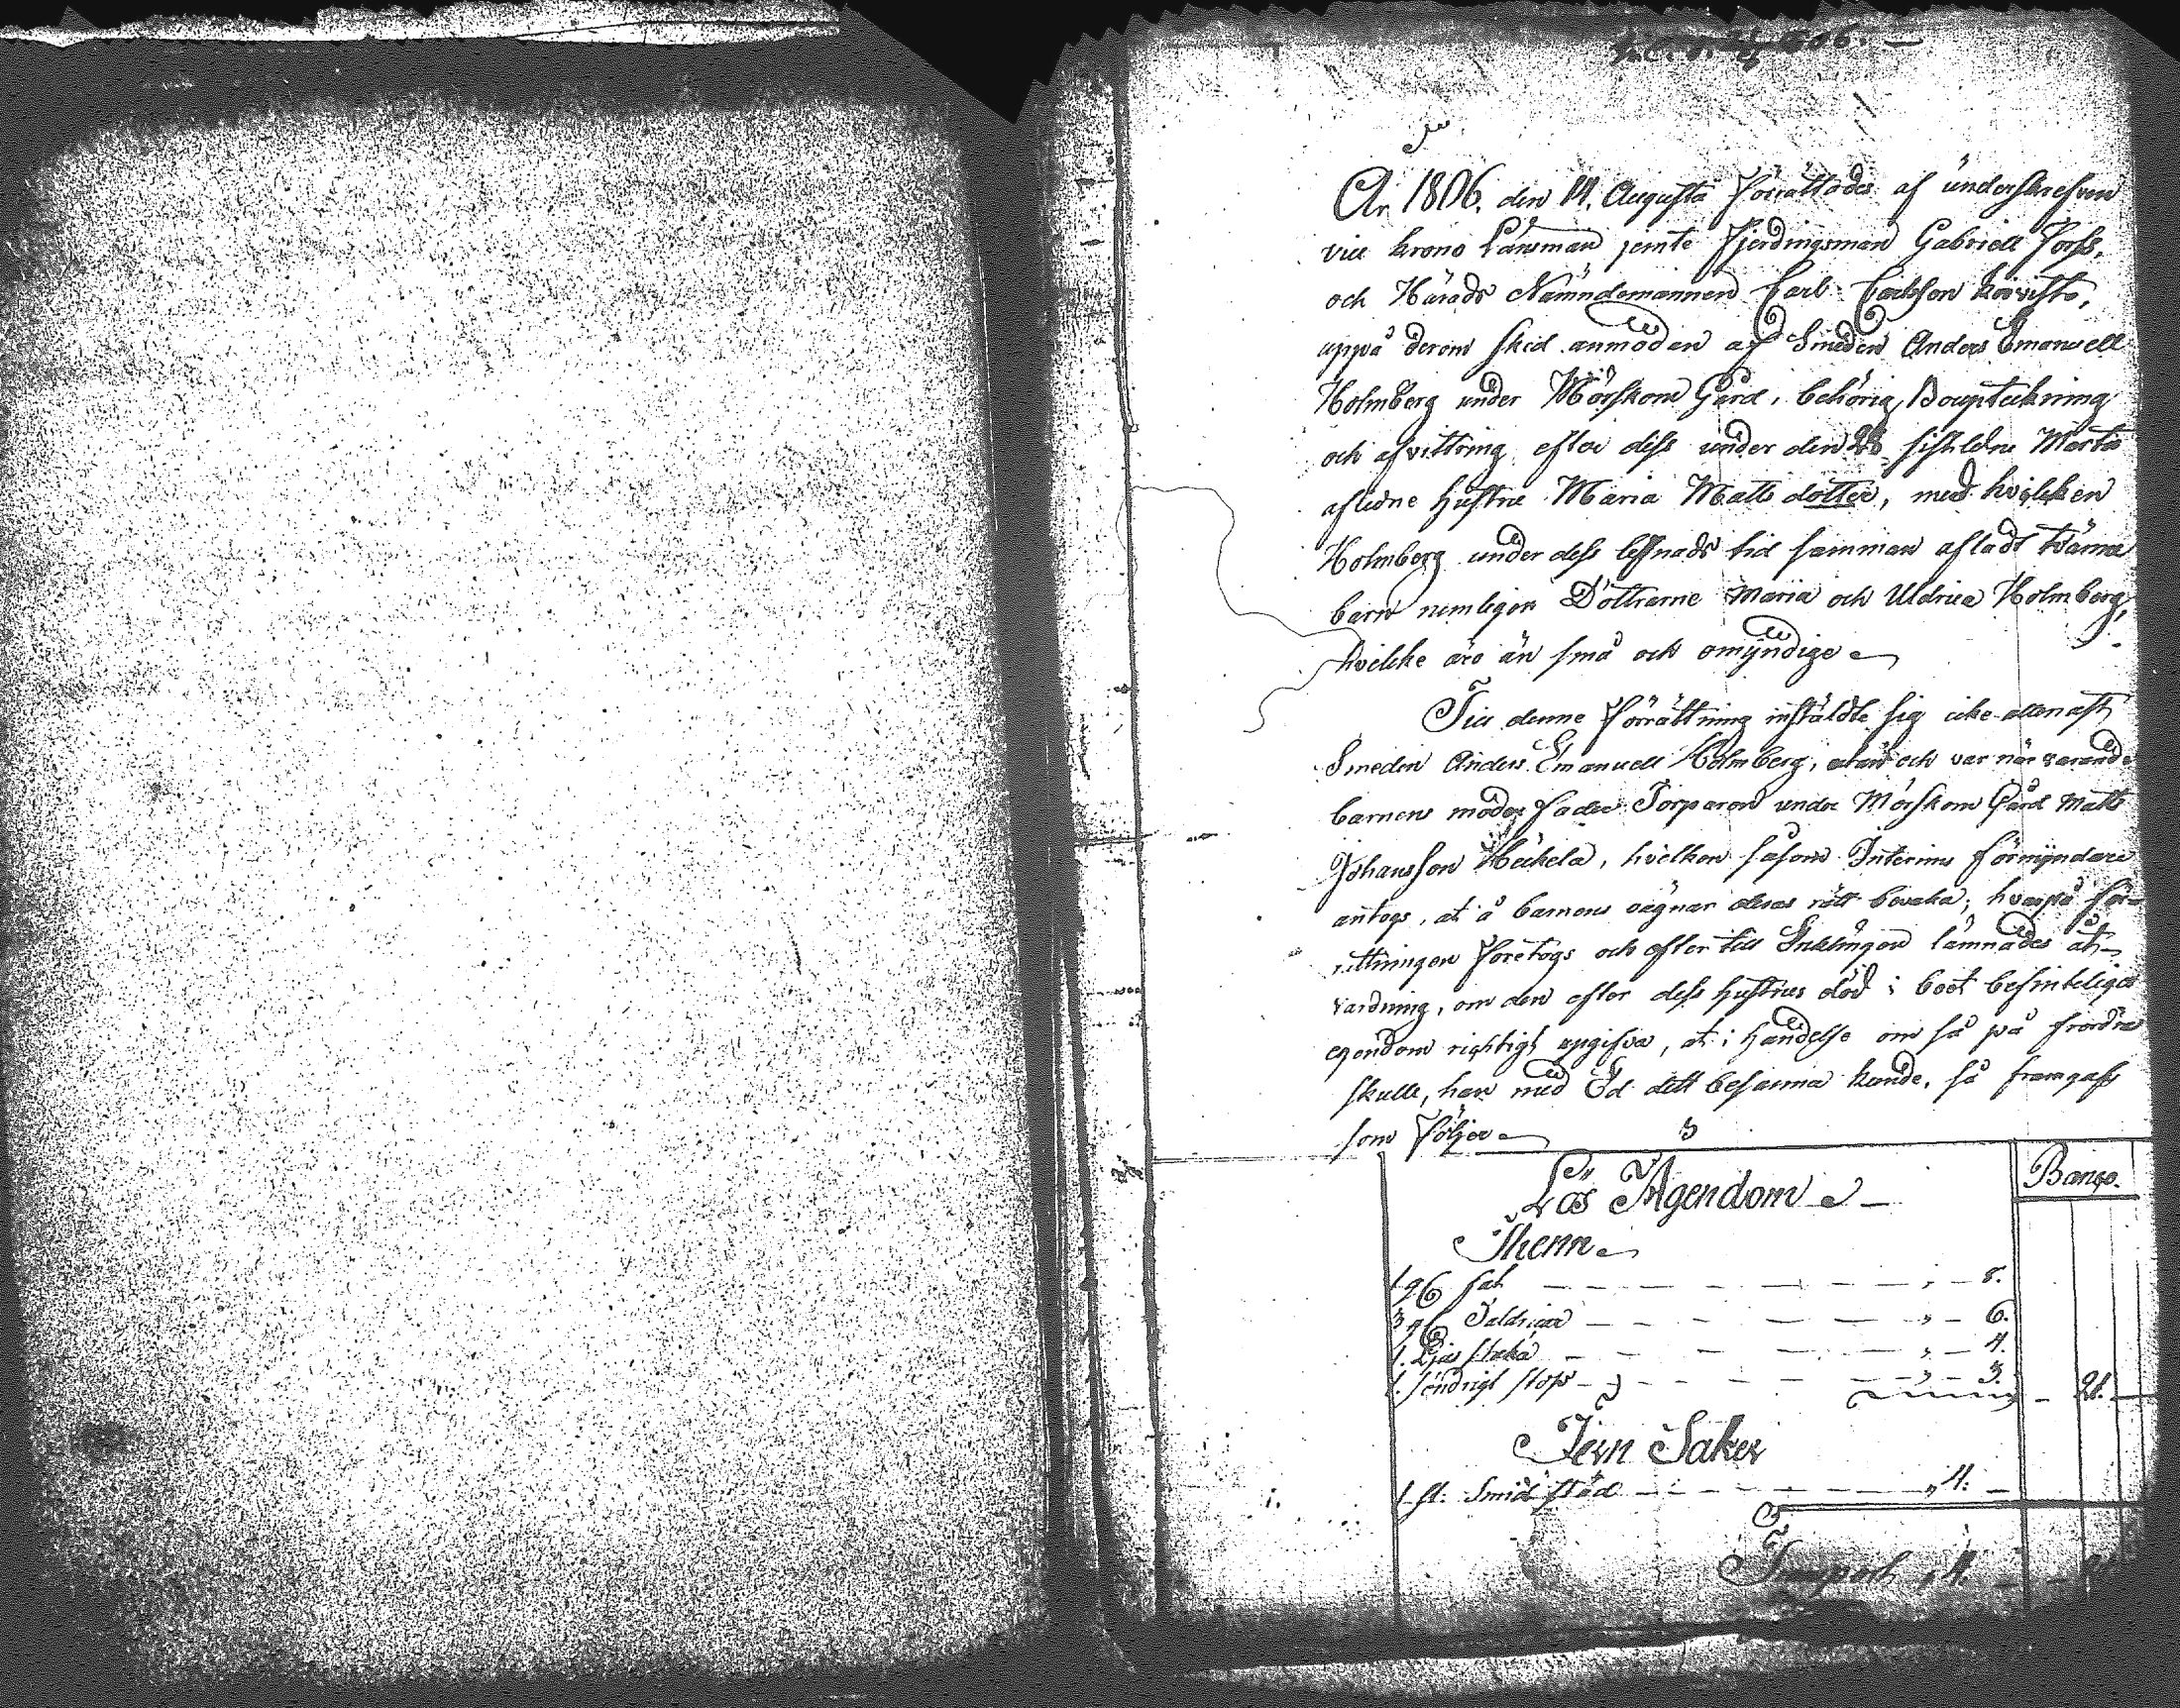 År 1806. den 14. Augusti förrättades af underskrefven
vice krono Länsman jemte Fjerdingsman Gabriell Forss,
och Härads Nämndemannen Carl Carlsson Koivisto,
uppå derom sked anmodan af Smeden Anders Emanuell
Holmberg under Mörskom Gård, behörig Bouptekning
och afvittring efter dess under den 28 sistledne Martii
afledne hustru Maria Matts dotter, med hvilken
Holmberg under dess lefnads tid samman aflat tvänne
barn nemligen Döttrarne Maria och Uldrica Holmberg,
hvilcke äro än små och omyndige
Till denne förrättning instälde sig icke allenast
Smeden Anders Emanuell Holmberg, utan och var när varande
barnens moder fader Torparen under Mörskom Gård Matts
Johansson Heikelä, hvilken såsom Interims förmyndare
antogs, at å barnens vägnar deras rätt bevaka; hvarpå för-
rättningen företogs och efter till Enklingen lämnades åth-
varning, om den efter dess hustrus död i boet befinteliga
egendom richtigt upgifva, at i händelse om så på fordras
skulle, han med Ed dett besanna kunde, så framgafs
som följer
Lös Ägendom
Banco.
Thenn
1 gl fat — 8.
3 gl Taldrickar — 6.
1. Ljus staka — 4.
1. söndrigt stop — 3. — 21.
Jern Saker
1 st. Smid städ — 4. —
Transport 4. — 21